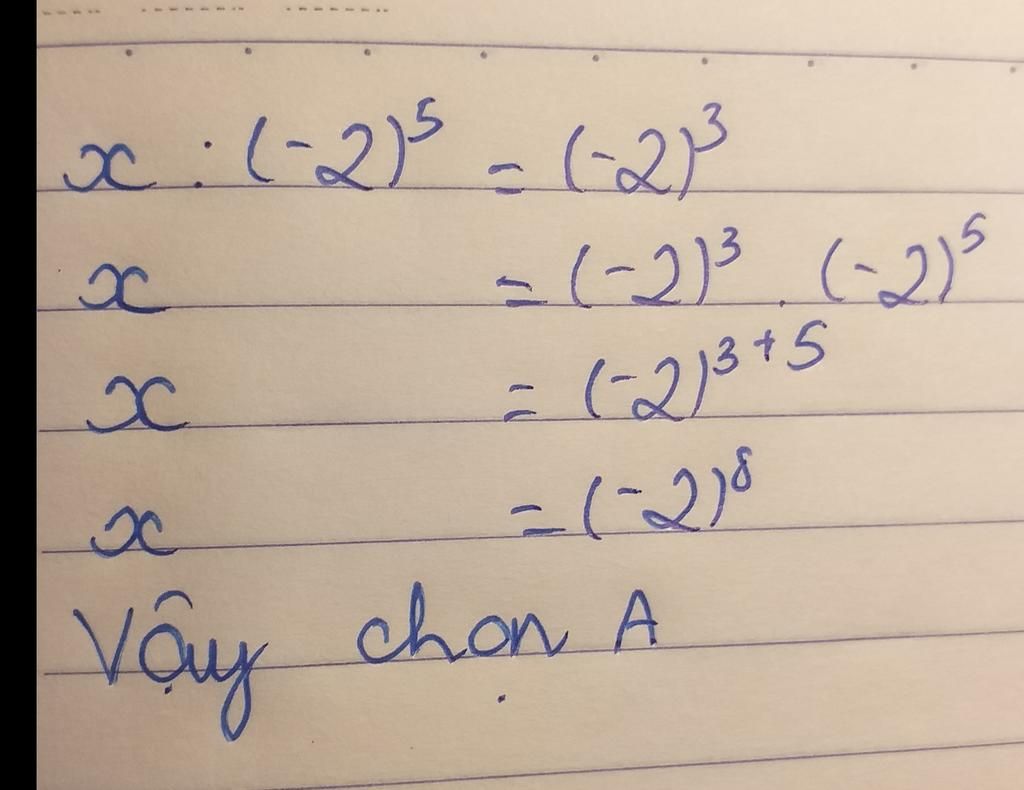 x : (-2)⁵ = (-2)³
x = (-2)³ . (-2)⁵
x = (-2)³⁺⁵
x = (-2)⁸
Vậy chọn A